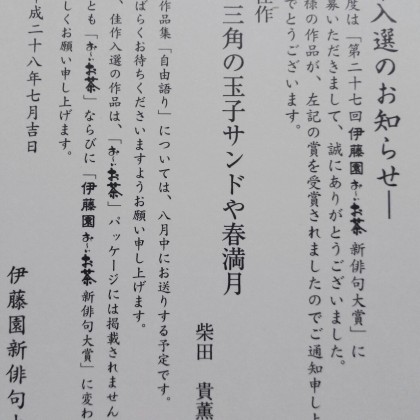 入選のお知らせ―
度は「第二十七回伊藤園お～いお茶新俳句大賞」に
募いただきまして、誠にありがとうございました。
様の作品が、左記の賞を受賞されましたのでご通知申し上
でとうございます。
佳作
三角の玉子サンドや春満月
柴田 貴薫
作品集「自由語り」については、八月中にお送りする予定です。
ばらくお待ちくださいますようお願い申し上げます。
、佳作入選の作品は、「お～いお茶」パッケージには掲載されません
とも「お～いお茶」ならびに「伊藤園お～いお茶新俳句大賞」に変わ
しくお願い申し上げます。
平成二十八年七月吉日
伊藤園新俳句大